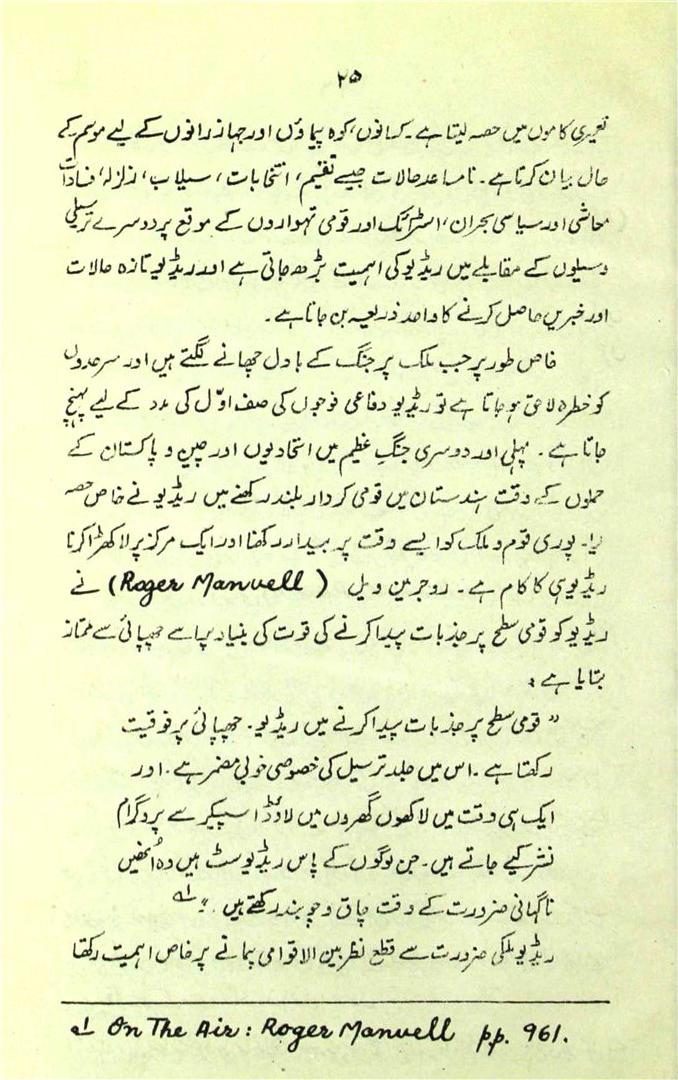 ۲۵
تعمیری کاموں میں حصہ لیتا ہے۔ کسانوں، کوہ پیماؤں اور جہاز رانوں کے لیے موسم کے
حال بیان کرتا ہے۔ نامساعد حالات جیسے تقسیم، انتخابات، سیلاب، زلزلہ، فسادات
معاشی اور سیاسی بحران، اسٹرائک اور قومی تہواروں کے موقع پر دوسرے ترسیلی
وسیلوں کے مقابلے میں ریڈیو کی اہمیت بڑھ جاتی ہے اور ریڈیو تازہ حالات
اور خبریں حاصل کرنے کا واحد ذریعہ بن جاتا ہے۔
خاص طور پر جب ملک پر جنگ کے بادل چھانے لگتے ہیں اور سرحدوں
کو خطرہ لاحق ہو جاتا ہے تو ریڈیو دفاعی فوجوں کی صف اوّل کی مدد کے لیے پہنچ
جاتا ہے۔ پہلی اور دوسری جنگِ عظیم میں اتحادیوں اور چین و پاکستان کے
حملوں کے وقت ہندستان میں قومی کردار بلند رکھنے میں ریڈیو نے خاص حصہ
لیا۔ پوری قوم و ملک کو ایسے وقت پر بیدار رکھنا اور ایک مرکز پر لا کھڑا کرنا
ریڈیو ہی کا کام ہے۔ روجر مین ویل (Roger Manvell) نے
ریڈیو کو قومی سطح پر جذبات پیدا کرنے کی قوت کی بنیاد پر اسے چھپائی سے ممتاز
بتایا ہے :
" قومی سطح پر جذبات پیدا کرنے میں ریڈیو۔ چھپائی پر فوقیت
رکتھا ہے۔ اس میں جلد ترسیل کی خصوصی خوبی مضمر ہے۔ اور
ایک ہی وقت میں لاکھوں گھروں میں لاؤڈ اسپیکر سے پروگرام
نشر کیے جاتے ہیں۔ جن لوگوں کے پاس ریڈیو سٹ ہیں وہ اُنھیں
ناگہانی ضرورت کے وقت چاق و چوبند رکھتے ہیں۔" لے
ریڈیو ملکی ضرورت سے قطع نظر بین الاقوامی پیمانے پر خاص اہمیت رکھتا
لے On The Air : Roger Manvell pp. 961.